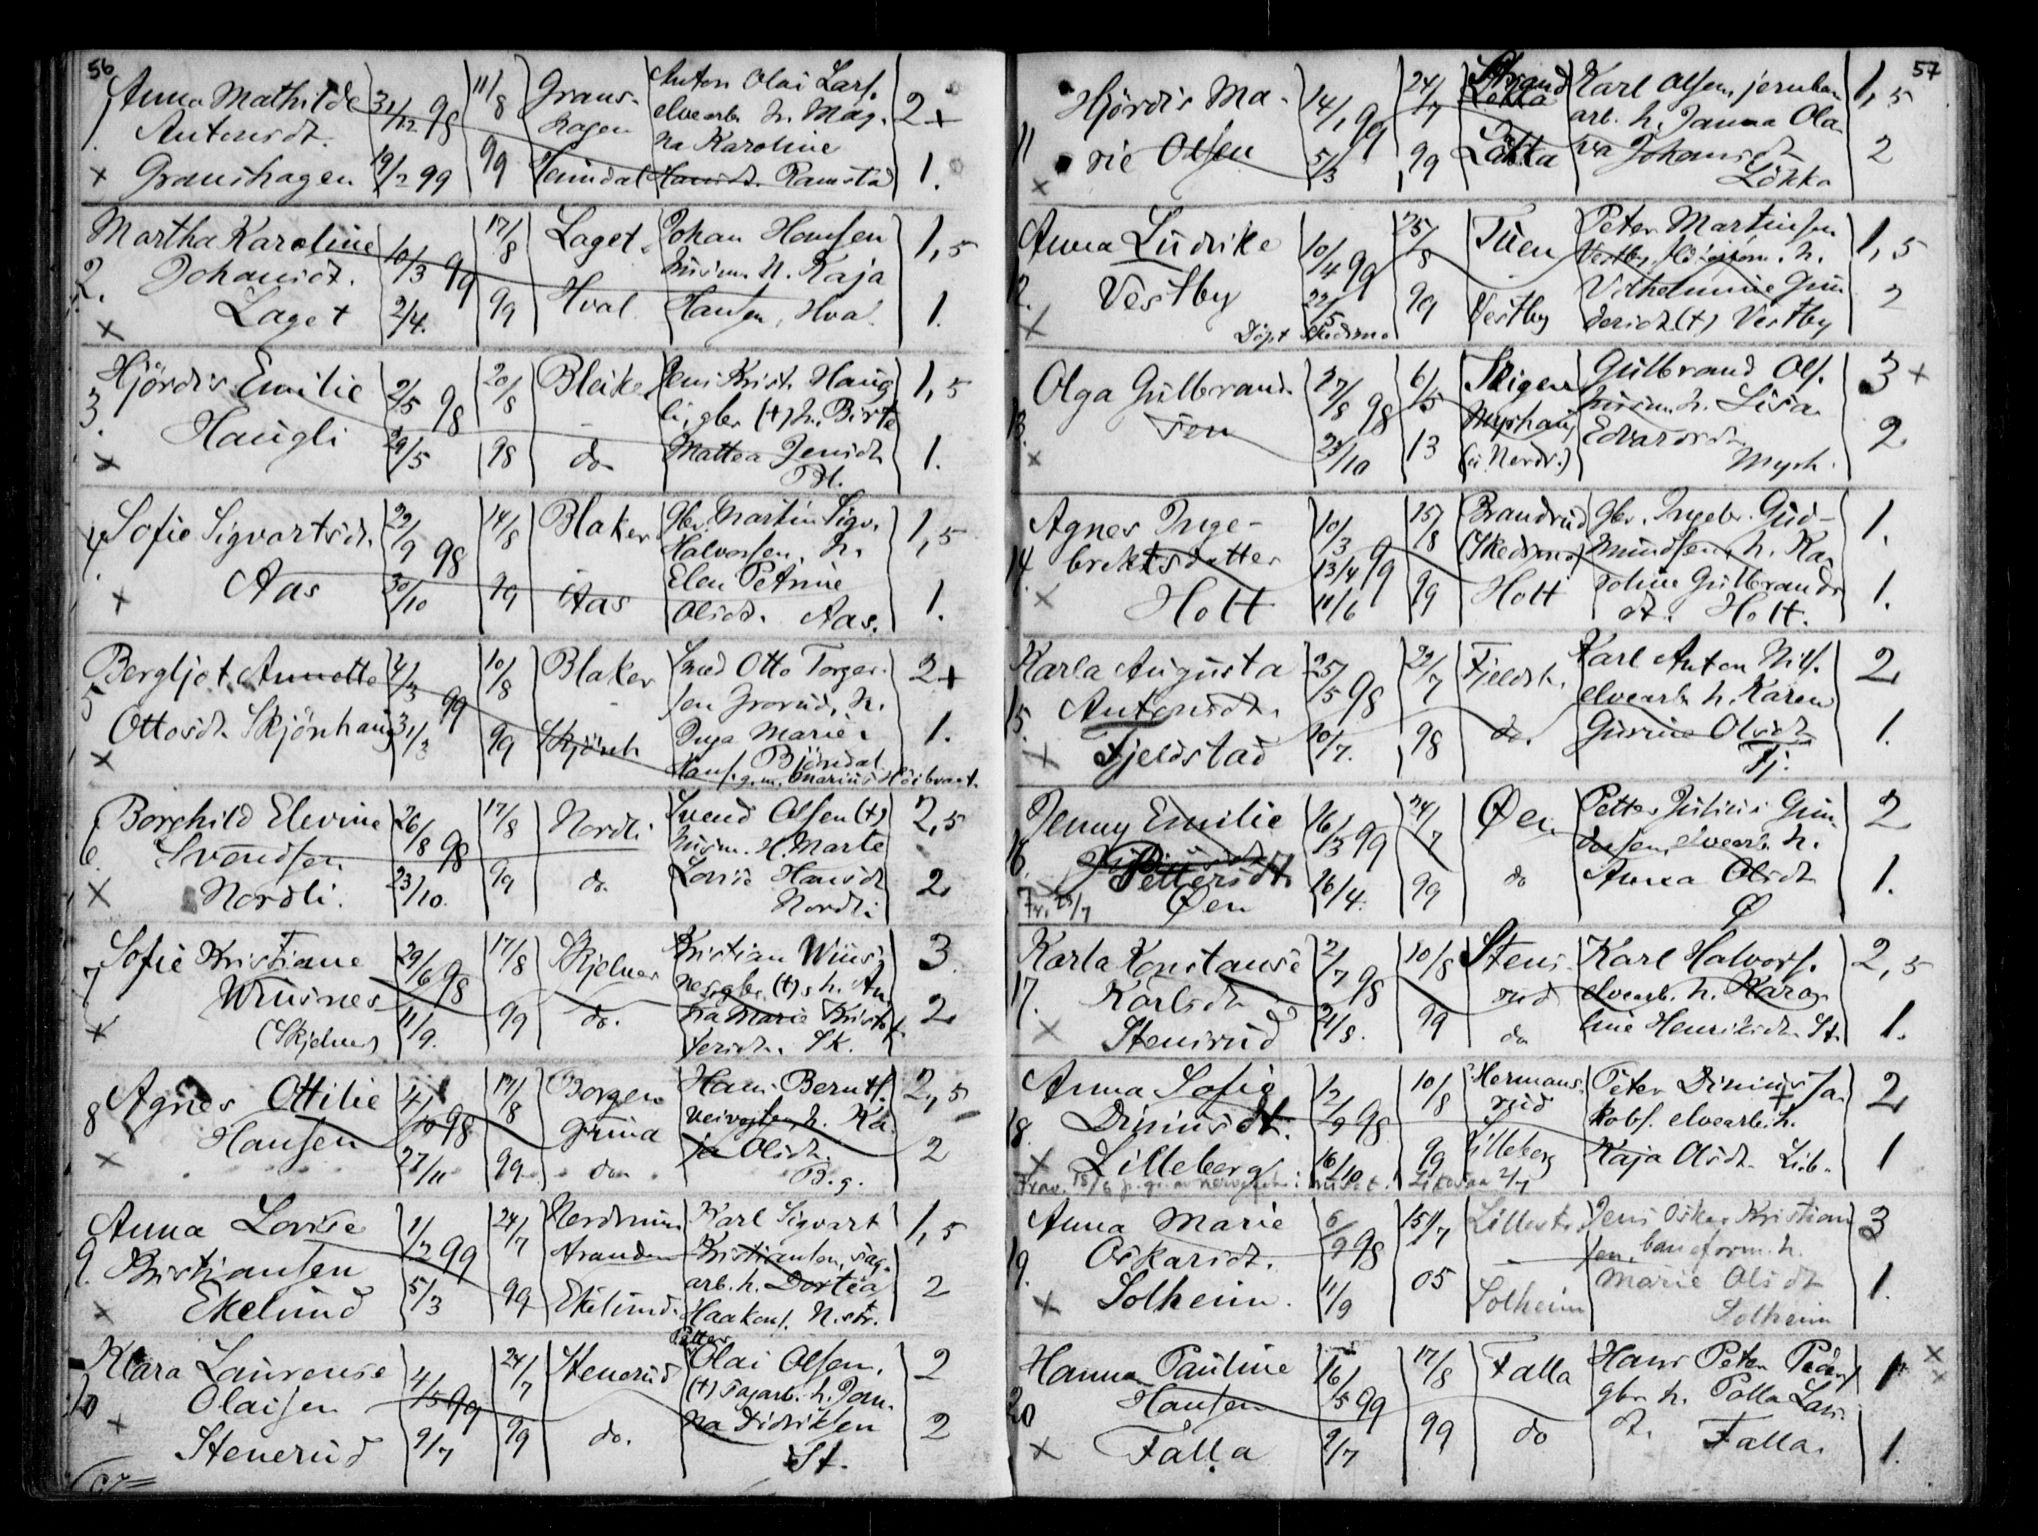 56
1. Anna Mathilde 31/12 98 11/8 Grans- Anton Olai Lars. 2+
Antonsdt. hagen elvearb. h. Mag-
na Karoline
x Granshagen 19/2 99 99 Heimdal Hansdt. Ramstad 1.
Martha Karoline 10/3 99 17/8 Laget Johan Hansen 1,5
2. Johansdt. husm. h. Kaja
x Laget 2/4. 99 Hval. Hansen, Hval 1.
Hjördis Emilie 2/5 98 20/8 Blaker Jens Krist. Haug 1,5
3. li, gbr. (+) h. Birte
x Haugli 29/5 98 do Mattea Jensdt. 1.
Bl.
4. Sofie Sigvartsdt. 22/9 98 14/8 Blaker Gbr. Martin Sigv. 1,5
Halvorsen, h.
x Aas 30/10 99 Aas Elen Petrine
Olsdt. Aas. 1.
5 Bergljot Annette 4/3 99 10/8 Blaker Smed Otto Torger- 2+
sen Frorud, h.
x Ottosdt. Skjönhaug 31/3 99 Skjönh. Inga Marie 1.
Hans. Bjöndal
g.m. Marius Höibraat.
Borghild Elevine 26/8 98 17/8 Nordli Svend Olsen (+) 2,5
6. Svendsen husm. H. Marte
x Nordli. 23/10. 99 do. Lovise Hansdt 2
Nordli
Sofie Kristiane 29/6 98 17/8 Skjelnes Kristian Wius- 3.
7 Wiusnes nes gbr. (+), h. An-
x (Skjelnes) 11/9. 99 do. na Marie Kristof- 2
fersdt. Sk.
8 Agnes Ottilie 4/10 98 17/8 Borgen Hans Berntf. 2,5
Hansen grund veivogter, h. Ka-
x 27/11 99 do ja Olsdt. 2
B.g.
Anna Lovise 1/2 99 24/7 Nordrum Karl Sigvart 1,5
9. Kristiansen stranden Kristiansen, sag-
x Ekelund 5/3 99 Ekelund. arb. h. Dortea 2
Haakons. N.str.
Klara Laurense 4/5 99 24/7 Stenerud Petter Olai Olsen, 2
10 Olaisen (+) sagarb. h. Jon-
x Stenerud 9/7 99 do. na Didriksen 2
St.
57
Hjördis Ma- 14/1 99 24/7 Strand Karl Olsen, jernban 1,5
11 rie Olsen 5/3 99 Løkka arb. h. Janna Ola- 2
x va Johansdt
Løkka
Anna Ludrike 10/4 99 25/8 Tuen Peter Martinsen 1,5
12. Vestby 22/5 99 Vestby Vilhelmine Gun- 2
x Döpt Skedsmo dersdt (+) Vestby
Olga Gulbrand- 27/8 98 6/5 Skigen Gulbrand Ols. 3+
13. sen Myrhaug husm. h. Lisa
x 23/10 13 (u. Nerdr.) Edvardsdt 2.
Myrh.
Agnes Inge- 10/3 99 15/8 Brandrud gbr. Ingebr. Gud- 1.
14. brektsdatter 13/4 (Skedsmo) mundsen, h. Ka-
x Holt 11/6 99 Holt roline Gulbrands 1.
dt. Holt.
Karla Augusta 25/5 98 22/7 Fjeldst. Karl Anton Nils. 2
15. Antonsdt. elvearb. h. Karen
x Fjeldstad 10/7. 98 do. Gurine Olsdt 1.
Fj.
Jenny Emilie 16/3 99 24/7 Øen Petter Julius Gun 2
16. Pettersdt. dersen, elvearb. h.
Øen 16/4. 99 do Anna Olsdt 1.
Ø
Karla Konstanse 2/7 98 10/8 Stens- Karl Halvorf. 2,5
17. Karlsdt rud elvearb. h. Karo-
x Stensrud 21/8. 99 do line Henriksdt. St. 1.
Anna Sofie 12/9 98 10/8 Hermans- Peter Dinius Ja- 2
18. Diniusdt. rud kobs. elvearb. h.
x Lilleberg 16/10 99 Lilleberg Kaja Olsdt. Lib. 1
Anna Marie 6/9 98 15/7 Lillestr. Jens Oskar Kristian 3
19. Oskarsdt. sen, baneform. h.
x Solheim. 11/9 05 Solheim Marie Olsdt 1.
Solheim
Hanna Pauline 16/5 99 17/8 Falla Hans Peter Peders 1 x
20 Hansen gbr. h. Palla Lars- x
x Falla 9/7 99 do dt. Falla. 1.